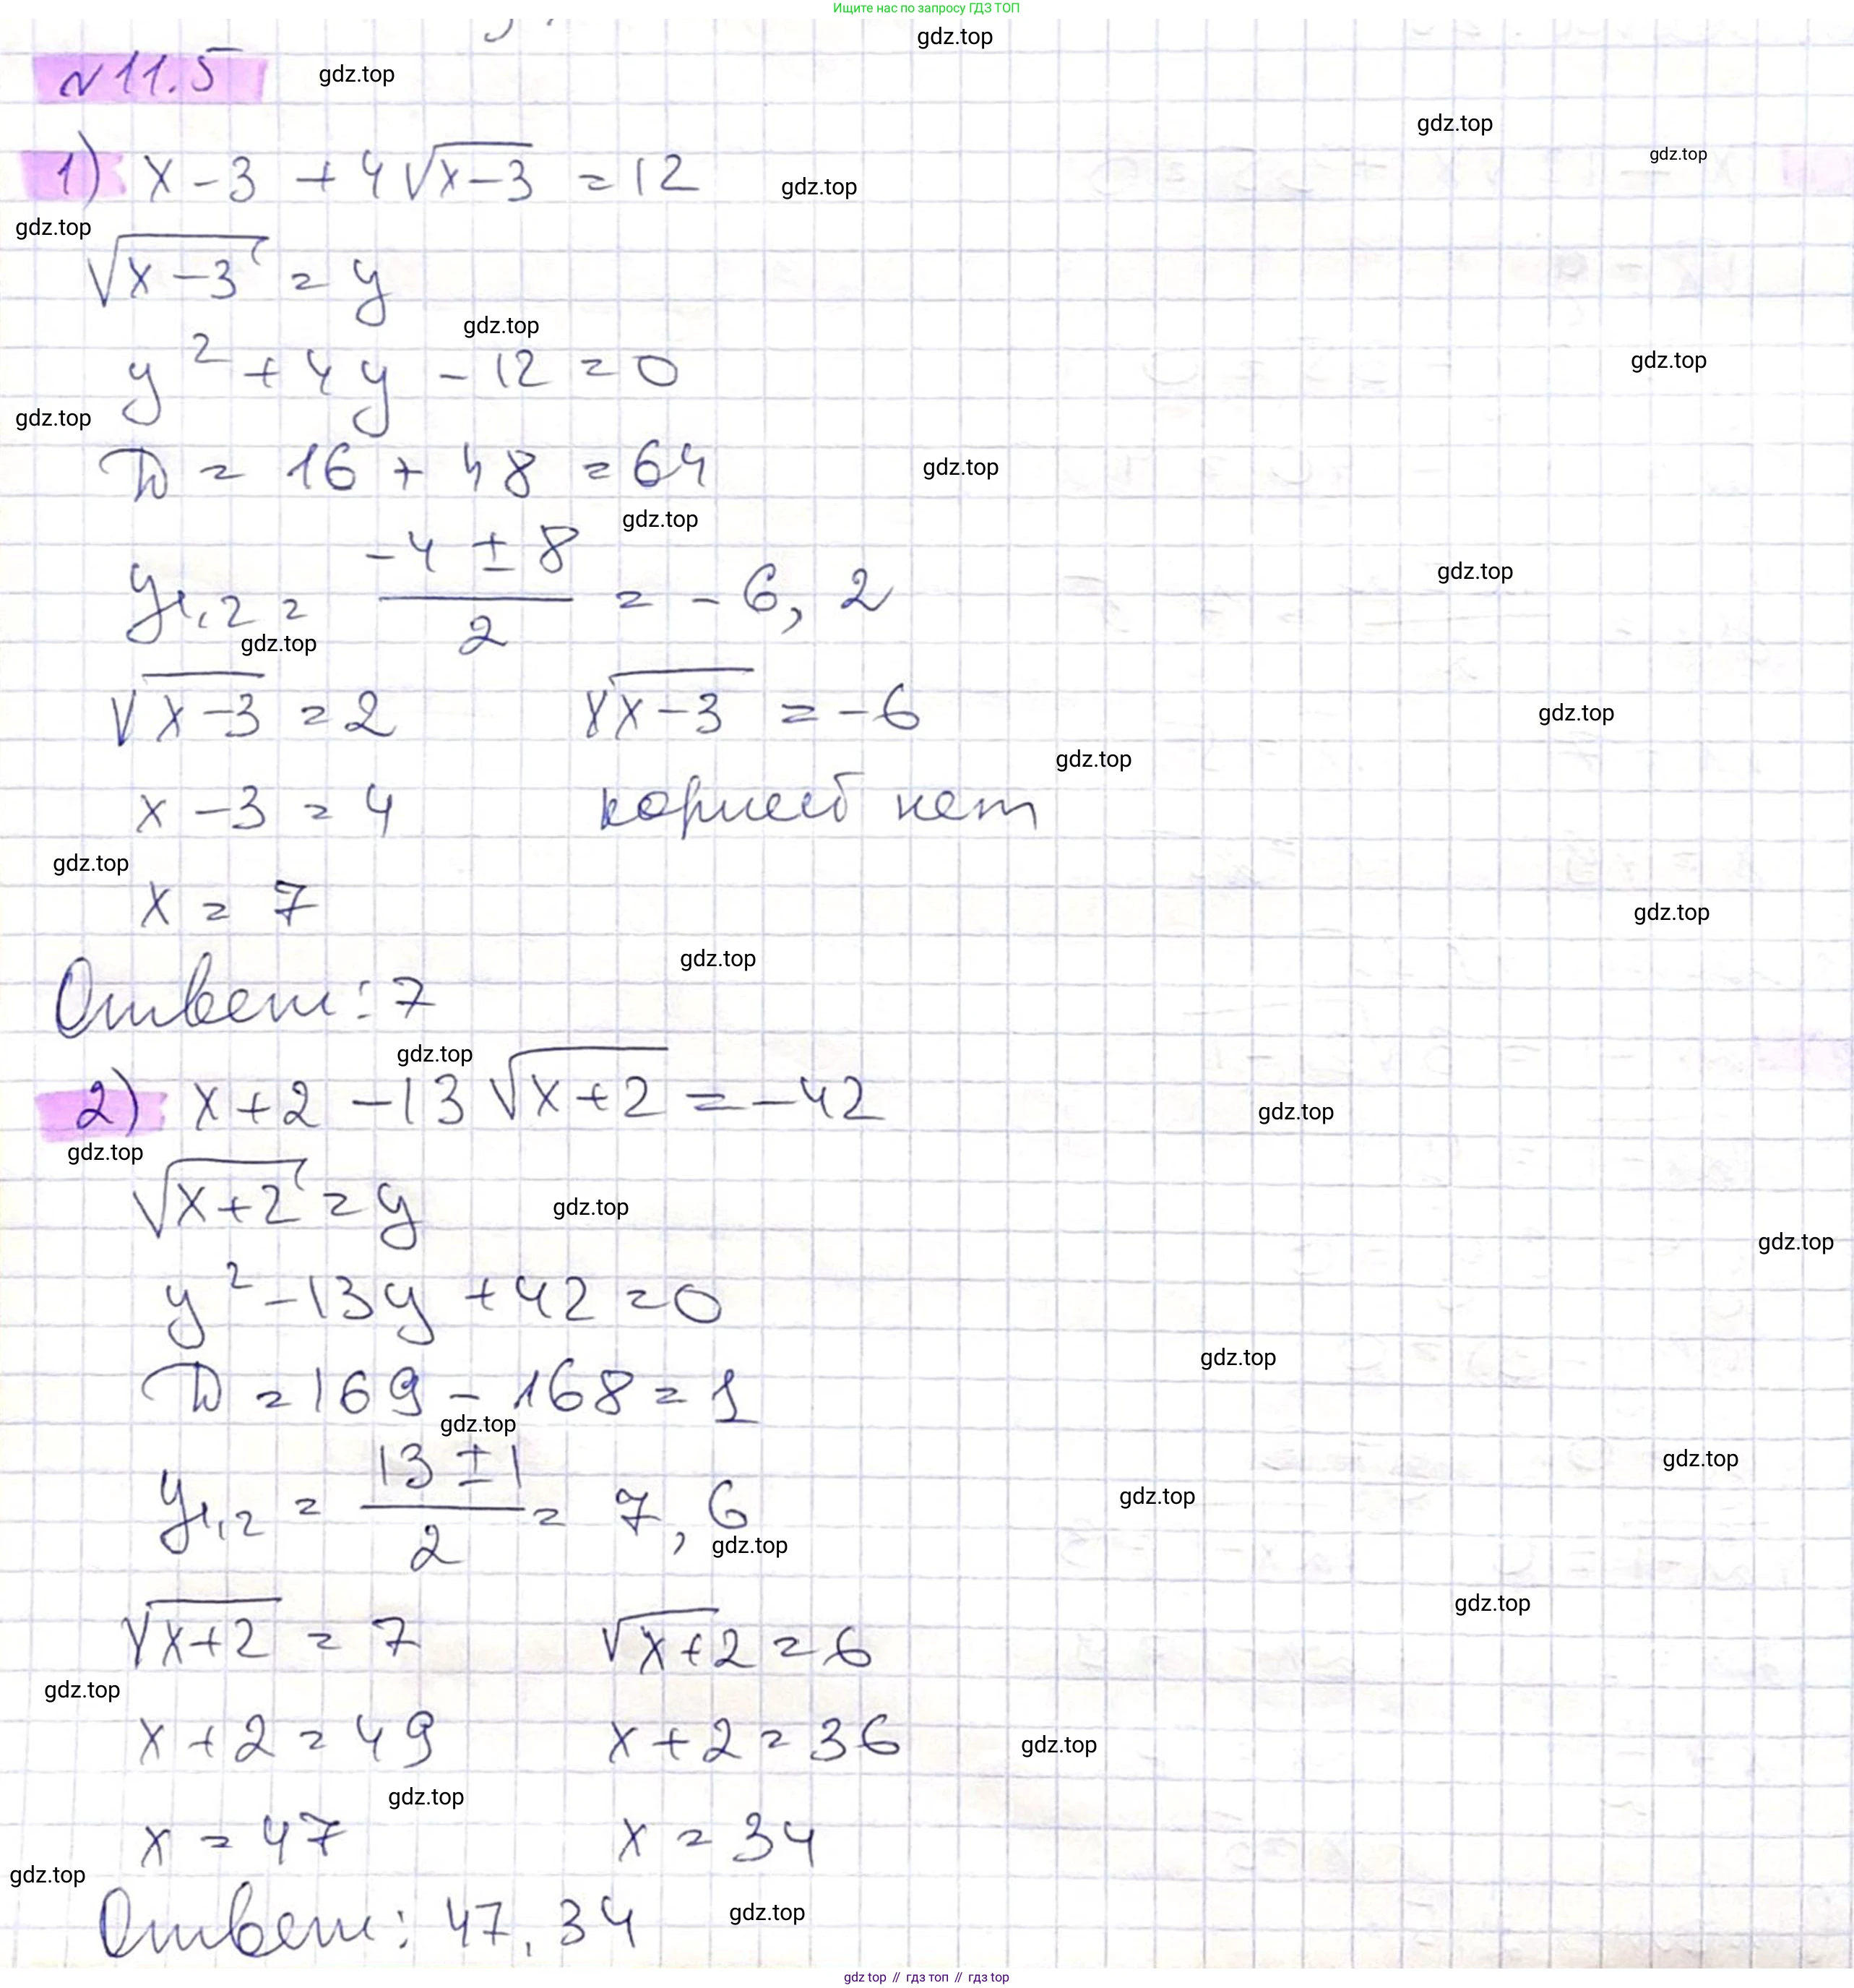 Ищите нас по запросу ГДЗ ТОП
gdz.top
№ 11.5 gdz.top
gdz.top
gdz.top
1) x - 3 + 4√(x-3) = 12 gdz.top
gdz.top
√(x-3) = y
gdz.top
y² + 4y - 12 = 0 gdz.top
gdz.top
D = 16 + 48 = 64 gdz.top
gdz.top
y₁,₂ = (-4 ± 8)/2 = -6, 2 gdz.top
gdz.top
√(x-3) = 2 √(x-3) = -6 gdz.top
gdz.top
x - 3 = 4 корней нет
gdz.top
x = 7 gdz.top
gdz.top
Ответ: 7
gdz.top
2) x + 2 - 13√(x+2) = -42 gdz.top
gdz.top
√(x+2) = y gdz.top
gdz.top
y² - 13y + 42 = 0
gdz.top
D = 169 - 168 = 1
gdz.top
gdz.top
y₁,₂ = (13 ± 1)/2 = 7, 6 gdz.top
gdz.top
gdz.top
√(x+2) = 7 √(x+2) = 6
gdz.top
x + 2 = 49 x + 2 = 36 gdz.top
gdz.top
x = 47 x = 34
gdz.top
Ответ: 47, 34 gdz.top
gdz top // гдз топ // gdz top